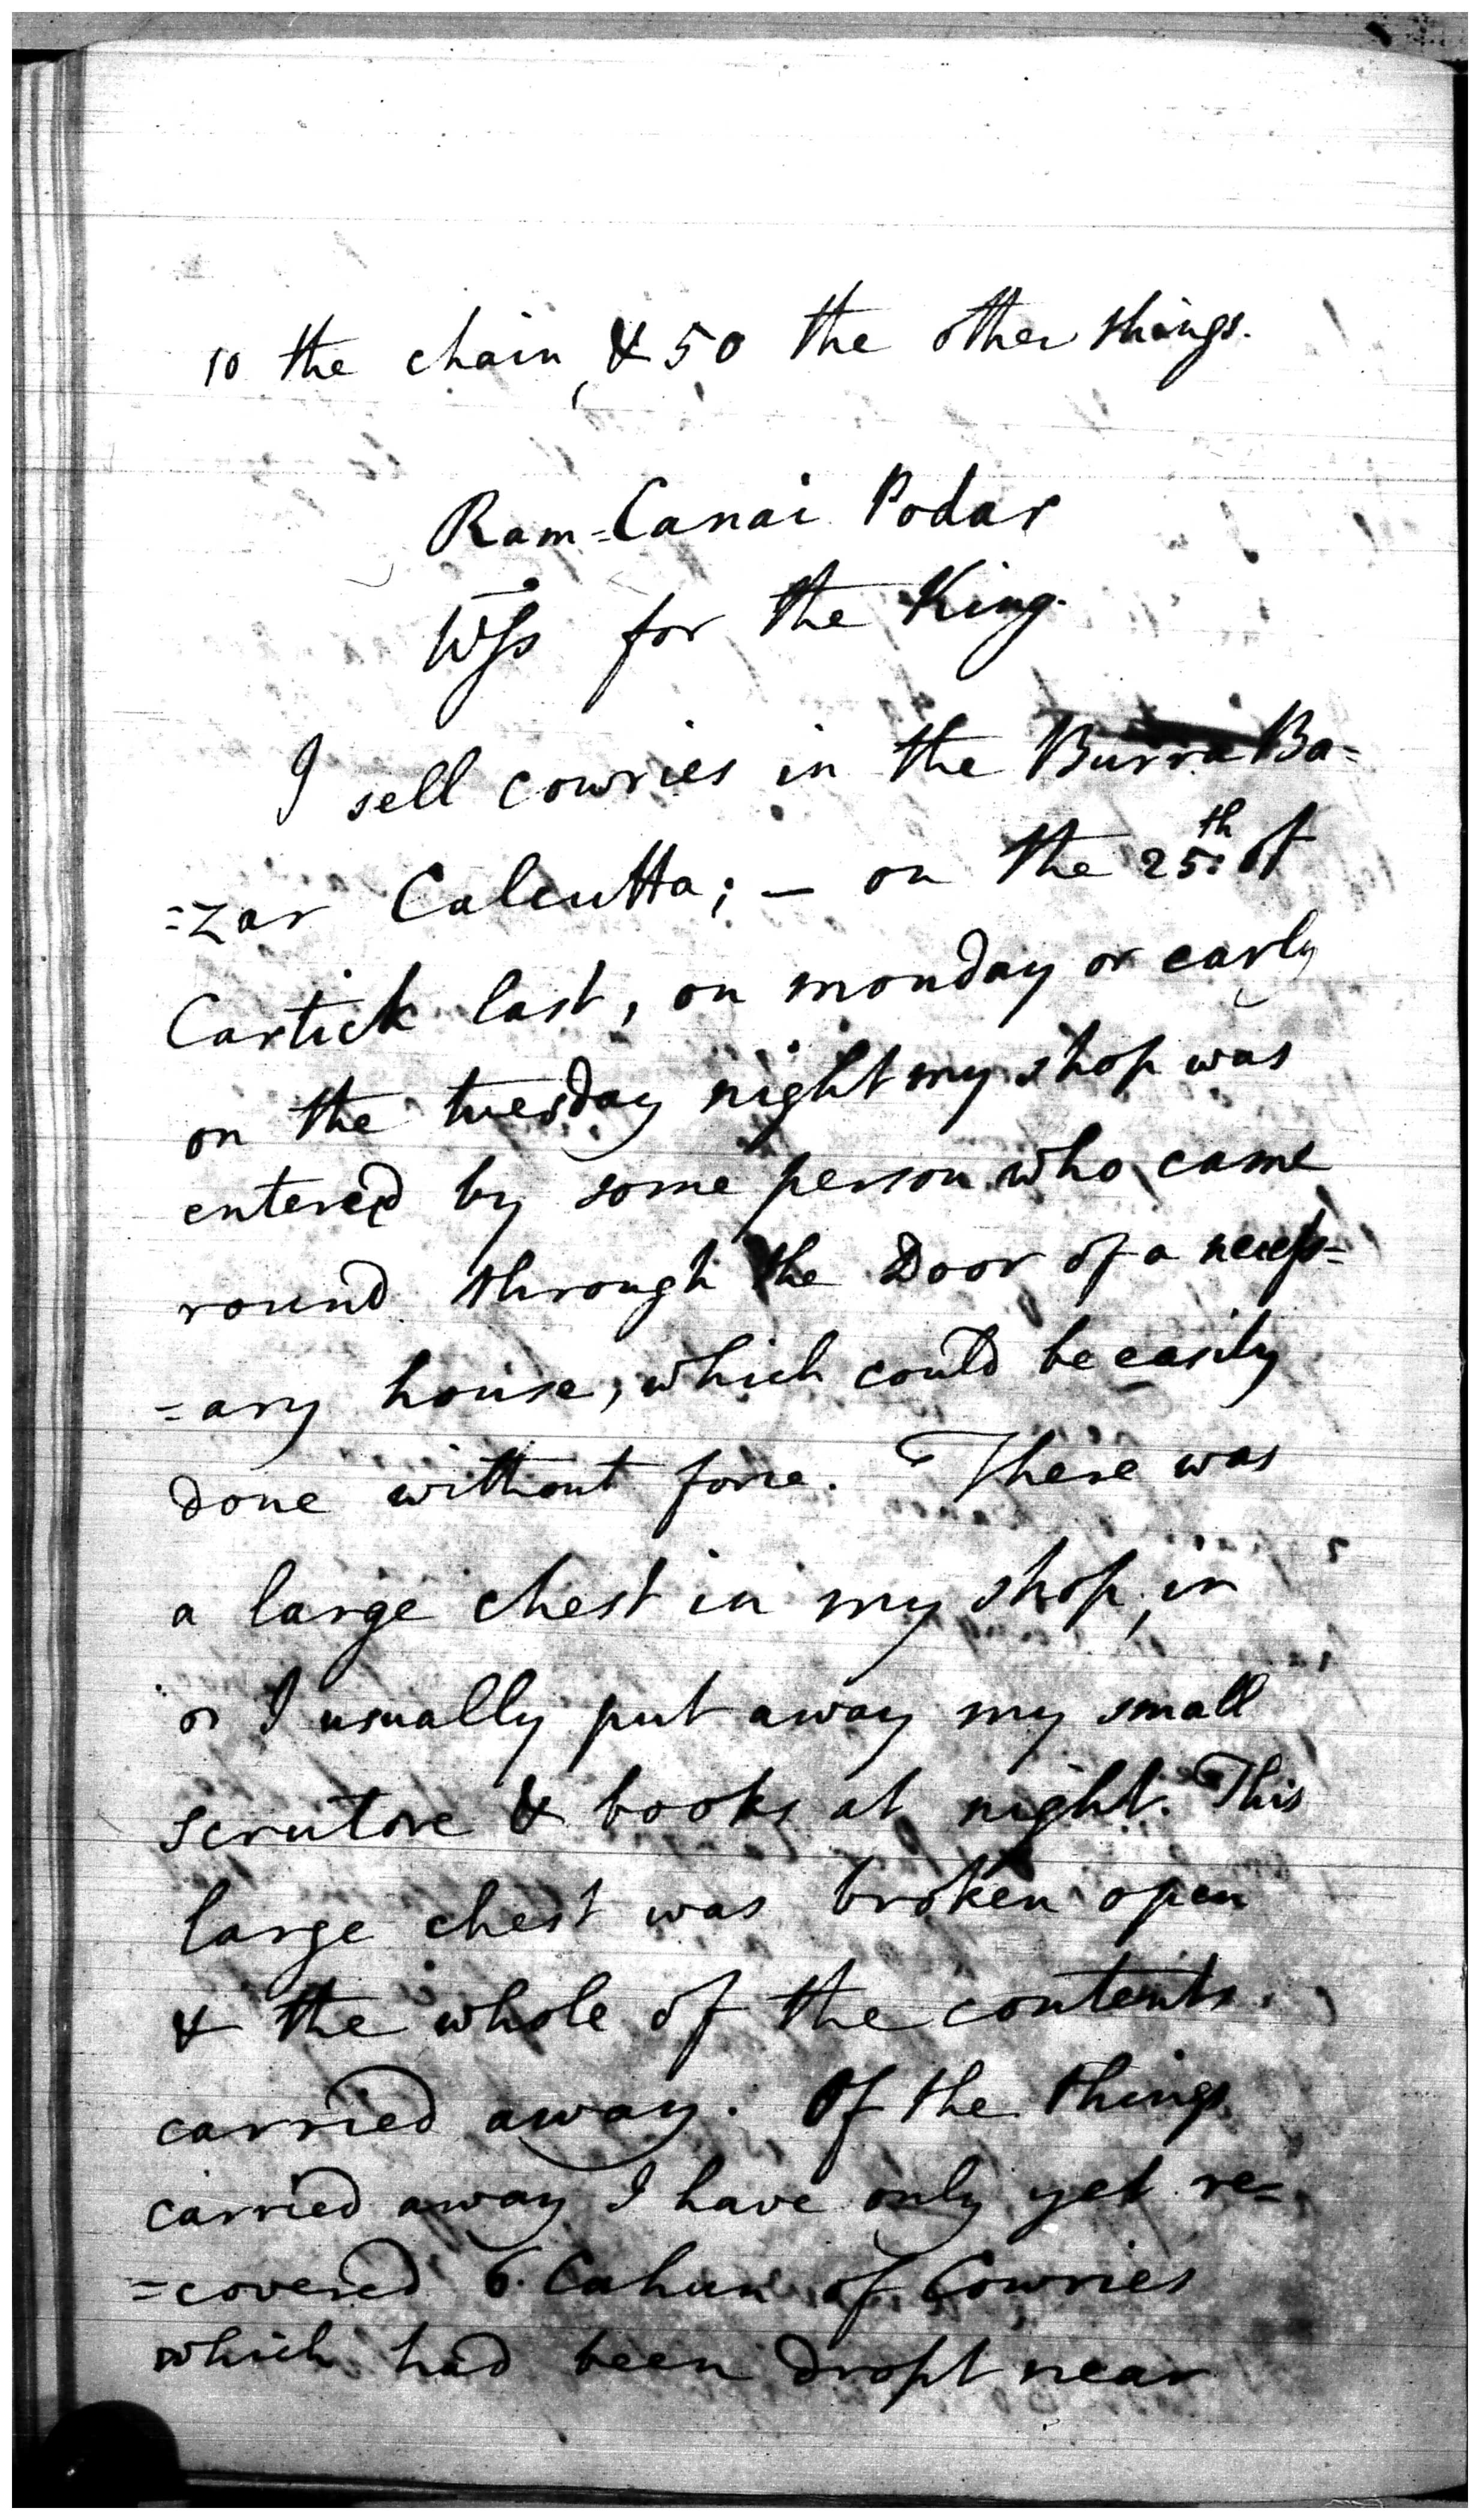 10 the chain, & 50 the other things.
Ram=Canai Podar
Wss for the King.
I sell cowries in the Burra Ba=
=zar Calcutta; — on the 25th of
Cartick last, on monday or early
on the tuesday night my shop was
entered by some person who came
round through the Door of a necess=
=ary house, which could be easily
done without force. There was
a large chest in my shop, in
I usually put away my small
scrutore & books at night. This
large chest was broken open
& the whole of the contents
carried away. Of the things
carried away I have only yet re=
=covered 6. Cahun of Cowries
which had been dropt near